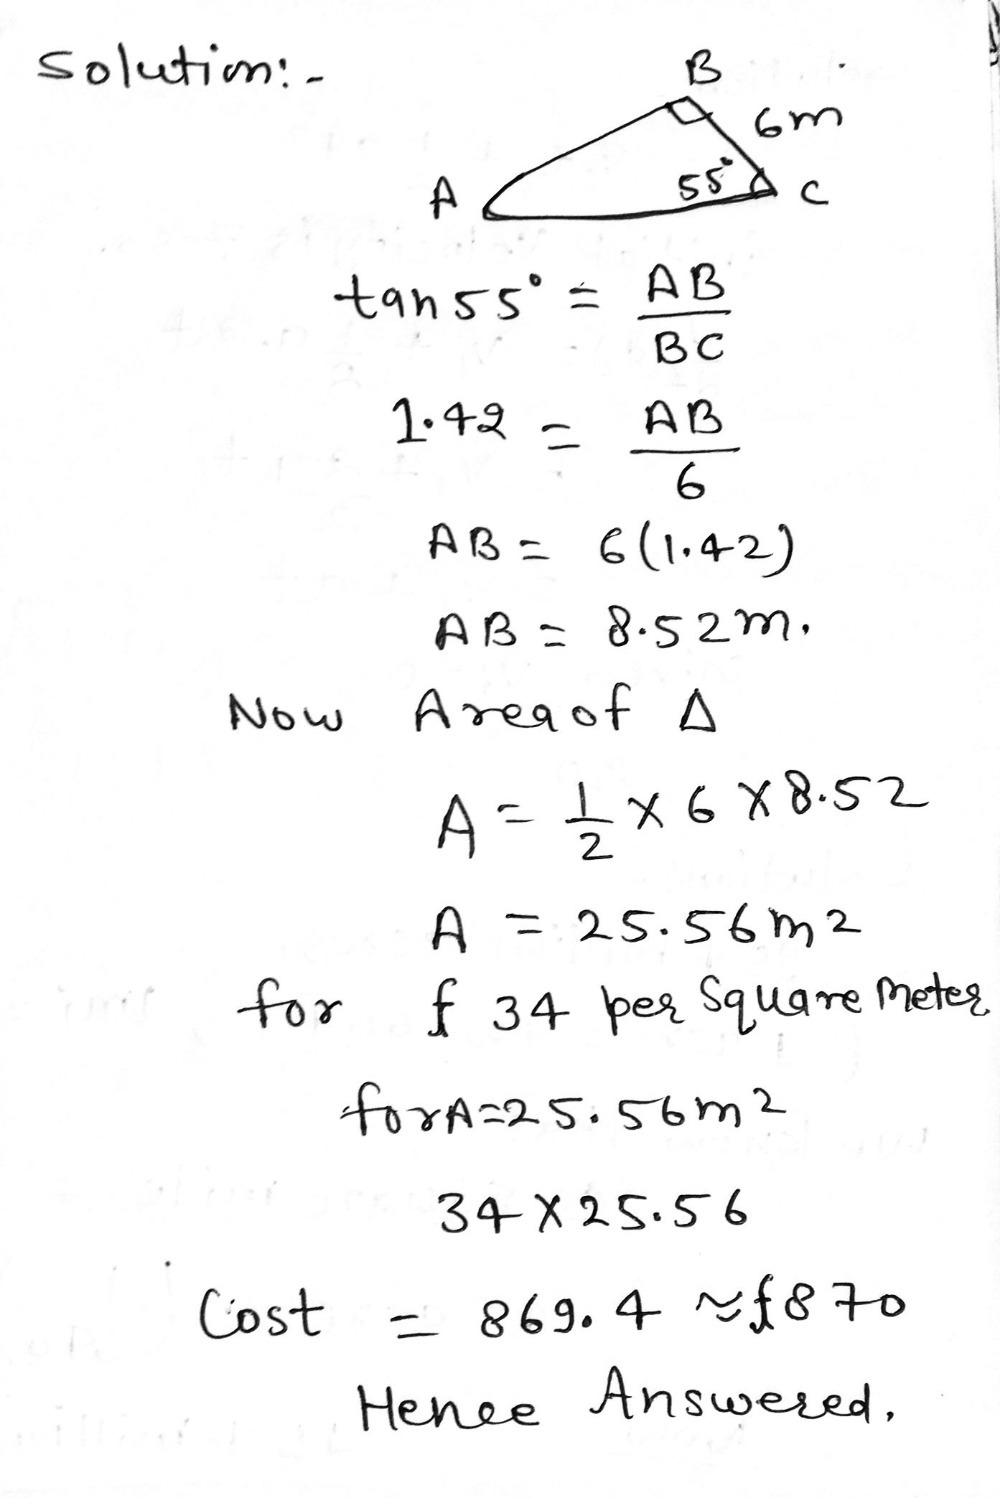 Solution:-
B
6m
A
55°
C
tan 55° = AB
BC
1.42 = AB
6
AB = 6(1.42)
AB = 8.52m.
Now Area of Δ
A = 1/2 X 6 X 8.52
A = 25.56m2
for £ 34 per Square Meter
for A=25.56m2
34 X 25.56
Cost = 869.4 ≈ £870
Hence Answered.